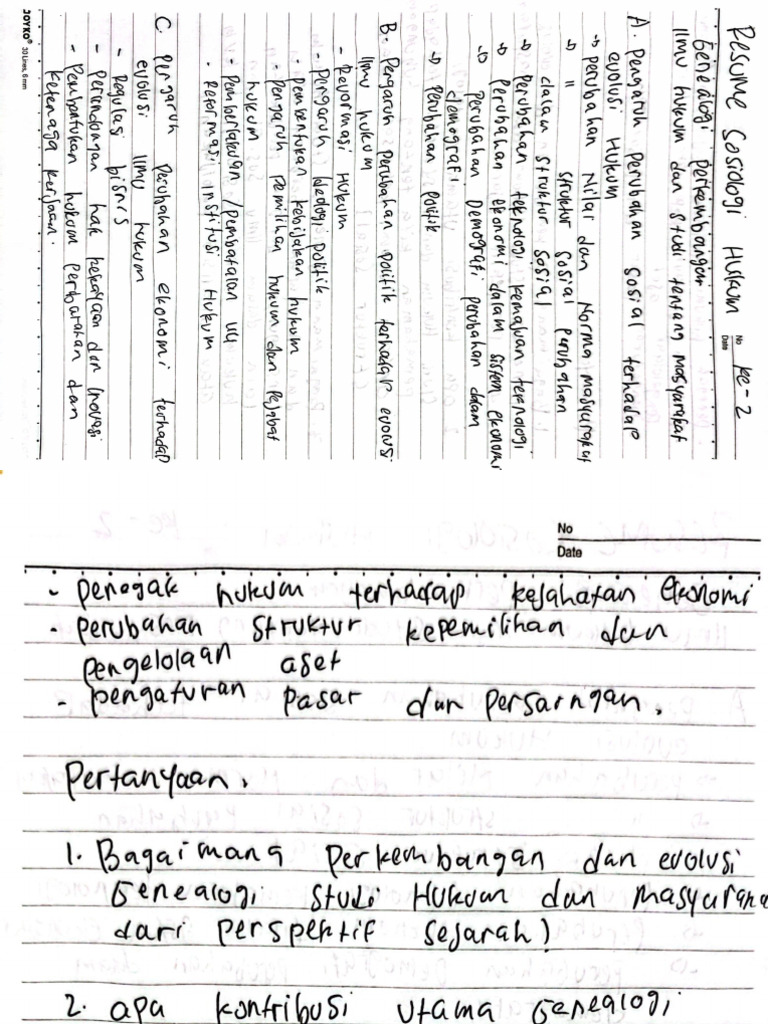 Resume Sosiologi Hukum No ke-2
Date
Genealogi perkembangan
Ilmu hukum dan studi tentang masyarakat
A. Pengaruh perubahan sosial terhadap
evolusi Hukum
→ perubahan Nilai dan Norma masyarakat
→ " struktur sosial perubahan
dalam struktur sosial
→ Perubahan teknologi kemajuan teknologi
→ Perubahan ekonomi dalam sistem ekonomi
→ perubahan Demografi perubahan dalam
demografi
→ Perubahan politik
B. Pengaruh perubahan politik terhadap evolusi
Ilmu hukum
- Revormasi Hukum
- Pengaruh Ideologi politik
- Pembentukan kebijakan hukum
- Pengaruh pemilihan hukum dan Pejabat
hukum
- Pemberlakuan / pembatalan UU
- Reformasi institusi Hukum
C. Pengaruh perubahan ekonomi terhadap
evolusi Ilmu hukum
- Regulasi bisnis
- Perlindongan hak kekayaan dan Inovasi
- Pembentukan hukum Perbatahan dan
ketenaga kerjaan.
JOYKO® 30 Lines, 6 mm
No
Date
- penegak hukum terhadap kejahatan Ekonomi
- Perubahan Struktur kepemilihan dan
pengelolaan aset
- pengaturan Pasar dan Persaingan.
Pertanyaan.
1. Bagaimana Perkembangan dan evolusi
Genealogi Studi Hukum dan masyaraka
dari perspektif sejarah)
2. apa kontribusi utama Genealogi